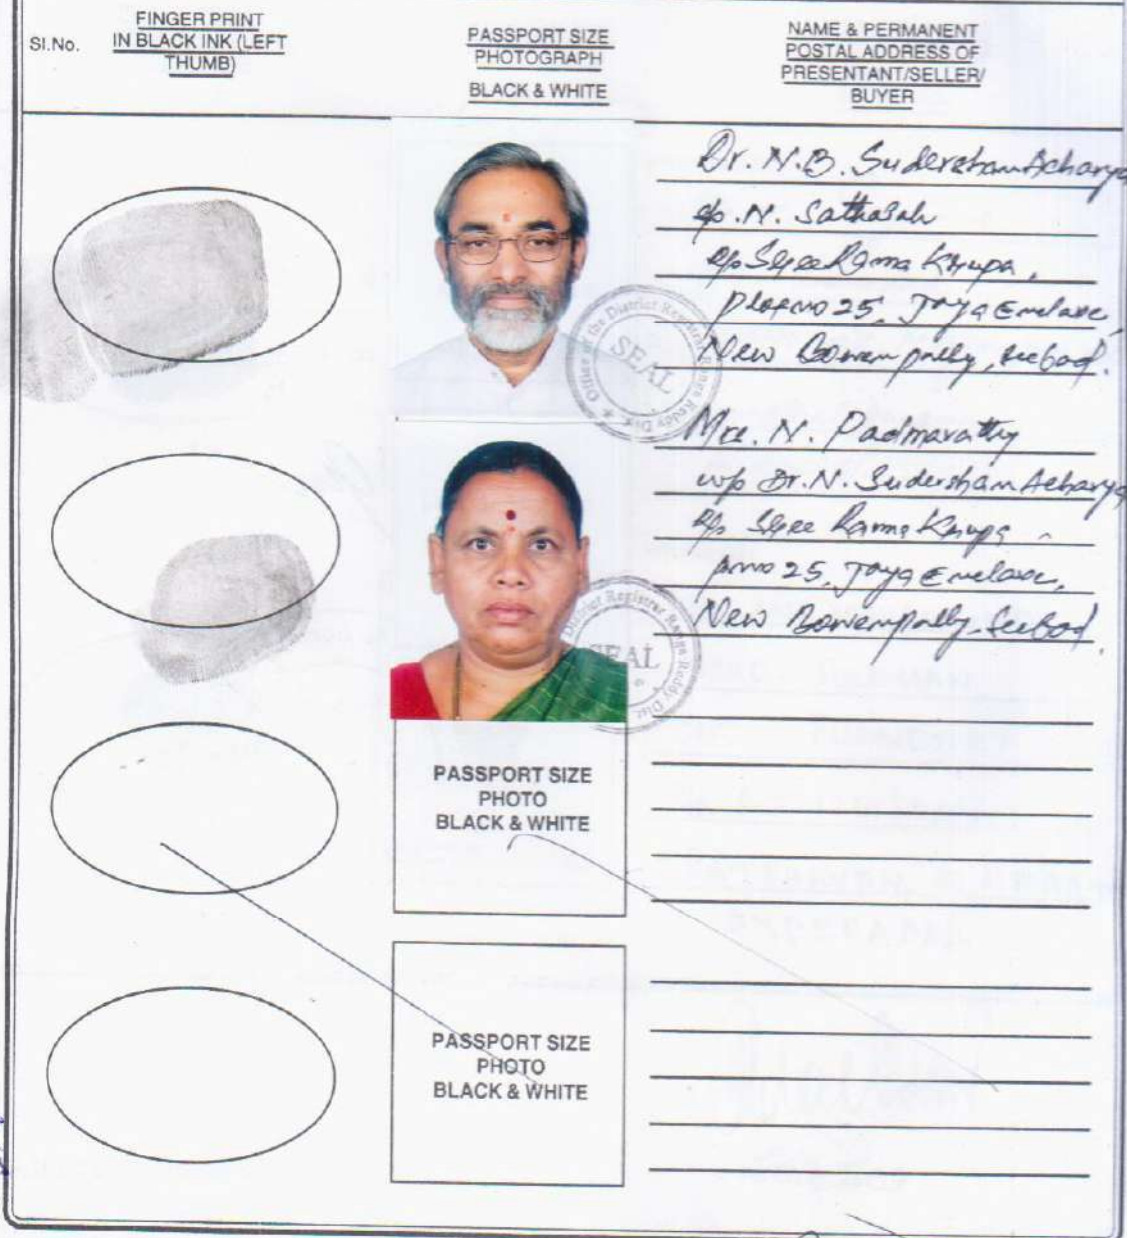 Sl.No.
FINGER PRINT
IN BLACK INK (LEFT
THUMB)
PASSPORT SIZE
PHOTOGRAPH
BLACK & WHITE
NAME & PERMANENT
POSTAL ADDRESS OF
PRESENTANT/SELLER/
BUYER
Dr. N.B. Sudersham Acharya
S/o. N. Sathaiah
R/o Shree Rama Krupa,
Plot no 25, Jaya Enclave,
New Bowenpally, Sec'bad.
Office of the District Registrar Ranga Reddy Dist.
SEAL
Mrs. N. Padmavathy
w/o Dr. N. Sudersham Acharya
R/o Shree Rama Krupa
P.no 25, Jaya Enclave,
New Bowenpally, Sec'bad.
District Registrar Ranga Reddy Dist.
SEAL
PASSPORT SIZE
PHOTO
BLACK & WHITE
PASSPORT SIZE
PHOTO
BLACK & WHITE